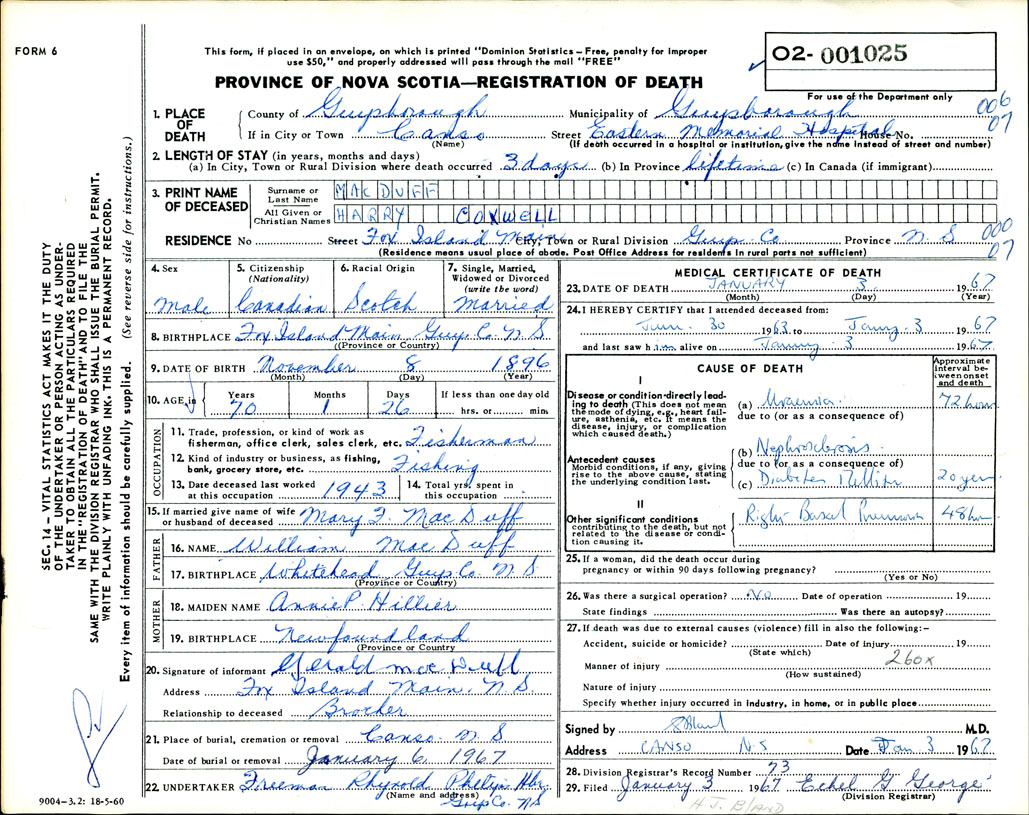 FORM 6
This form, if placed in an envelope, on which is printed "Dominion Statistics – Free, penalty for improper
use $50," and properly addressed will pass through the mail "FREE"
02- 001025
For use of the Department only
PROVINCE OF NOVA SCOTIA—REGISTRATION OF DEATH
006
07
1. PLACE OF DEATH
County of Guysborough Municipality of Guysborough
If in City or Town Canso Street Eastern Memorial Hospital House No.
(Name) (If death occurred in a hospital or institution, give the name instead of street and number)
2. LENGTH OF STAY (in years, months and days)
(a) In City, Town or Rural Division where death occurred 3 days (b) In Province lifetime (c) In Canada (if immigrant)
3. PRINT NAME OF DECEASED
Surname or Last Name MACDUFF
All Given or Christian Names HARRY COXWELL
000
07
RESIDENCE No Street Fox Island Main City, Town or Rural Division Guys. Co Province N. S
(Residence means usual place of abode. Post Office Address for residents in rural parts not sufficient)
4. Sex Male
5. Citizenship (Nationality) Canadian
6. Racial Origin Scotch
7. Single, Married, Widowed or Divorced (write the word) Married
8. BIRTHPLACE Fox Island Main Guys Co N S
(Province or Country)
9. DATE OF BIRTH November 8 1896
(Month) (Day) (Year)
10. AGE Years Months Days If less than one day old
70 1 26 hrs. or min.
OCCUPATION
11. Trade, profession, or kind of work as
fisherman, office clerk, sales clerk, etc. Fisherman
12. Kind of industry or business, as fishing,
bank, grocery store, etc. Fishing
13. Date deceased last worked at this occupation 1943
14. Total yrs. spent in this occupation
15. If married give name of wife or husband of deceased Mary F. MacDuff
FATHER
16. NAME William Mac Duff
17. BIRTHPLACE Whitehead Guys Co. N S
(Province or Country)
MOTHER
18. MAIDEN NAME Annie P. Hillier
19. BIRTHPLACE Newfoundland
(Province or Country
20. Signature of informant Gerald mac Duff
Address Fox Island Main, N S.
Relationship to deceased Brother
21. Place of burial, cremation or removal Canso N S
Date of burial or removal January 6 1967
22. UNDERTAKER Freeman Rhynold
(Name and address)
Guys Co. NS
MEDICAL CERTIFICATE OF DEATH
23. DATE OF DEATH JANUARY 3 1967
(Month) (Day) (Year)
24. I HEREBY CERTIFY that I attended deceased from:
30 1963 to 3 1967
and last saw him alive on 3 1967
CAUSE OF DEATH
Approximate interval between onset and death
I
Disease or condition directly leading to death (This does not mean the mode of dying, e.g., heart failure, asthenia, etc. It means the disease, injury, or complication which caused death.)
(a) Uraemia 72 hours
due to (or as a consequence of)
Antecedent causes
Morbid conditions, if any, giving rise to the above cause, stating the underlying condition last.
(b) Nephrosclerosis
due to (or as a consequence of)
(c) Diabetes Mellitus 20 years
II
Other significant conditions
contributing to the death, but not related to the disease or condition causing it.
Right Basal Pneumonia 48 hrs
25. If a woman, did the death occur during
pregnancy or within 90 days following pregnancy?
(Yes or No)
26. Was there a surgical operation? No Date of operation 19
State findings Was there an autopsy?
27. If death was due to external causes (violence) fill in also the following:–
Accident, suicide or homicide? Date of injury 19
(State which)
260x
Manner of injury
(How sustained)
Nature of injury
Specify whether injury occurred in industry, in home, or in public place
Signed by M.D.
Address CANSO N S Date Jan 3 1967
28. Division Registrar's Record Number 73
29. Filed January 3 1967 Ethel G George
(Division Registrar)
H J. BLAND
9004–3.2: 18-5-60
SEC. 14 – VITAL STATISTICS ACT MAKES IT THE DUTY
OF THE UNDERTAKER OR PERSON ACTING AS UNDER-
TAKER TO OBTAIN ALL THE PARTICULARS REQUIRED
IN THE "REGISTRATION OF DEATH" AND TO FILE THE
SAME WITH THE DIVISION REGISTRAR WHO SHALL ISSUE THE BURIAL PERMIT.
WRITE PLAINLY WITH UNFADING INK. THIS IS A PERMANENT RECORD.
Every item of information should be carefully supplied. (See reverse side for instructions.)